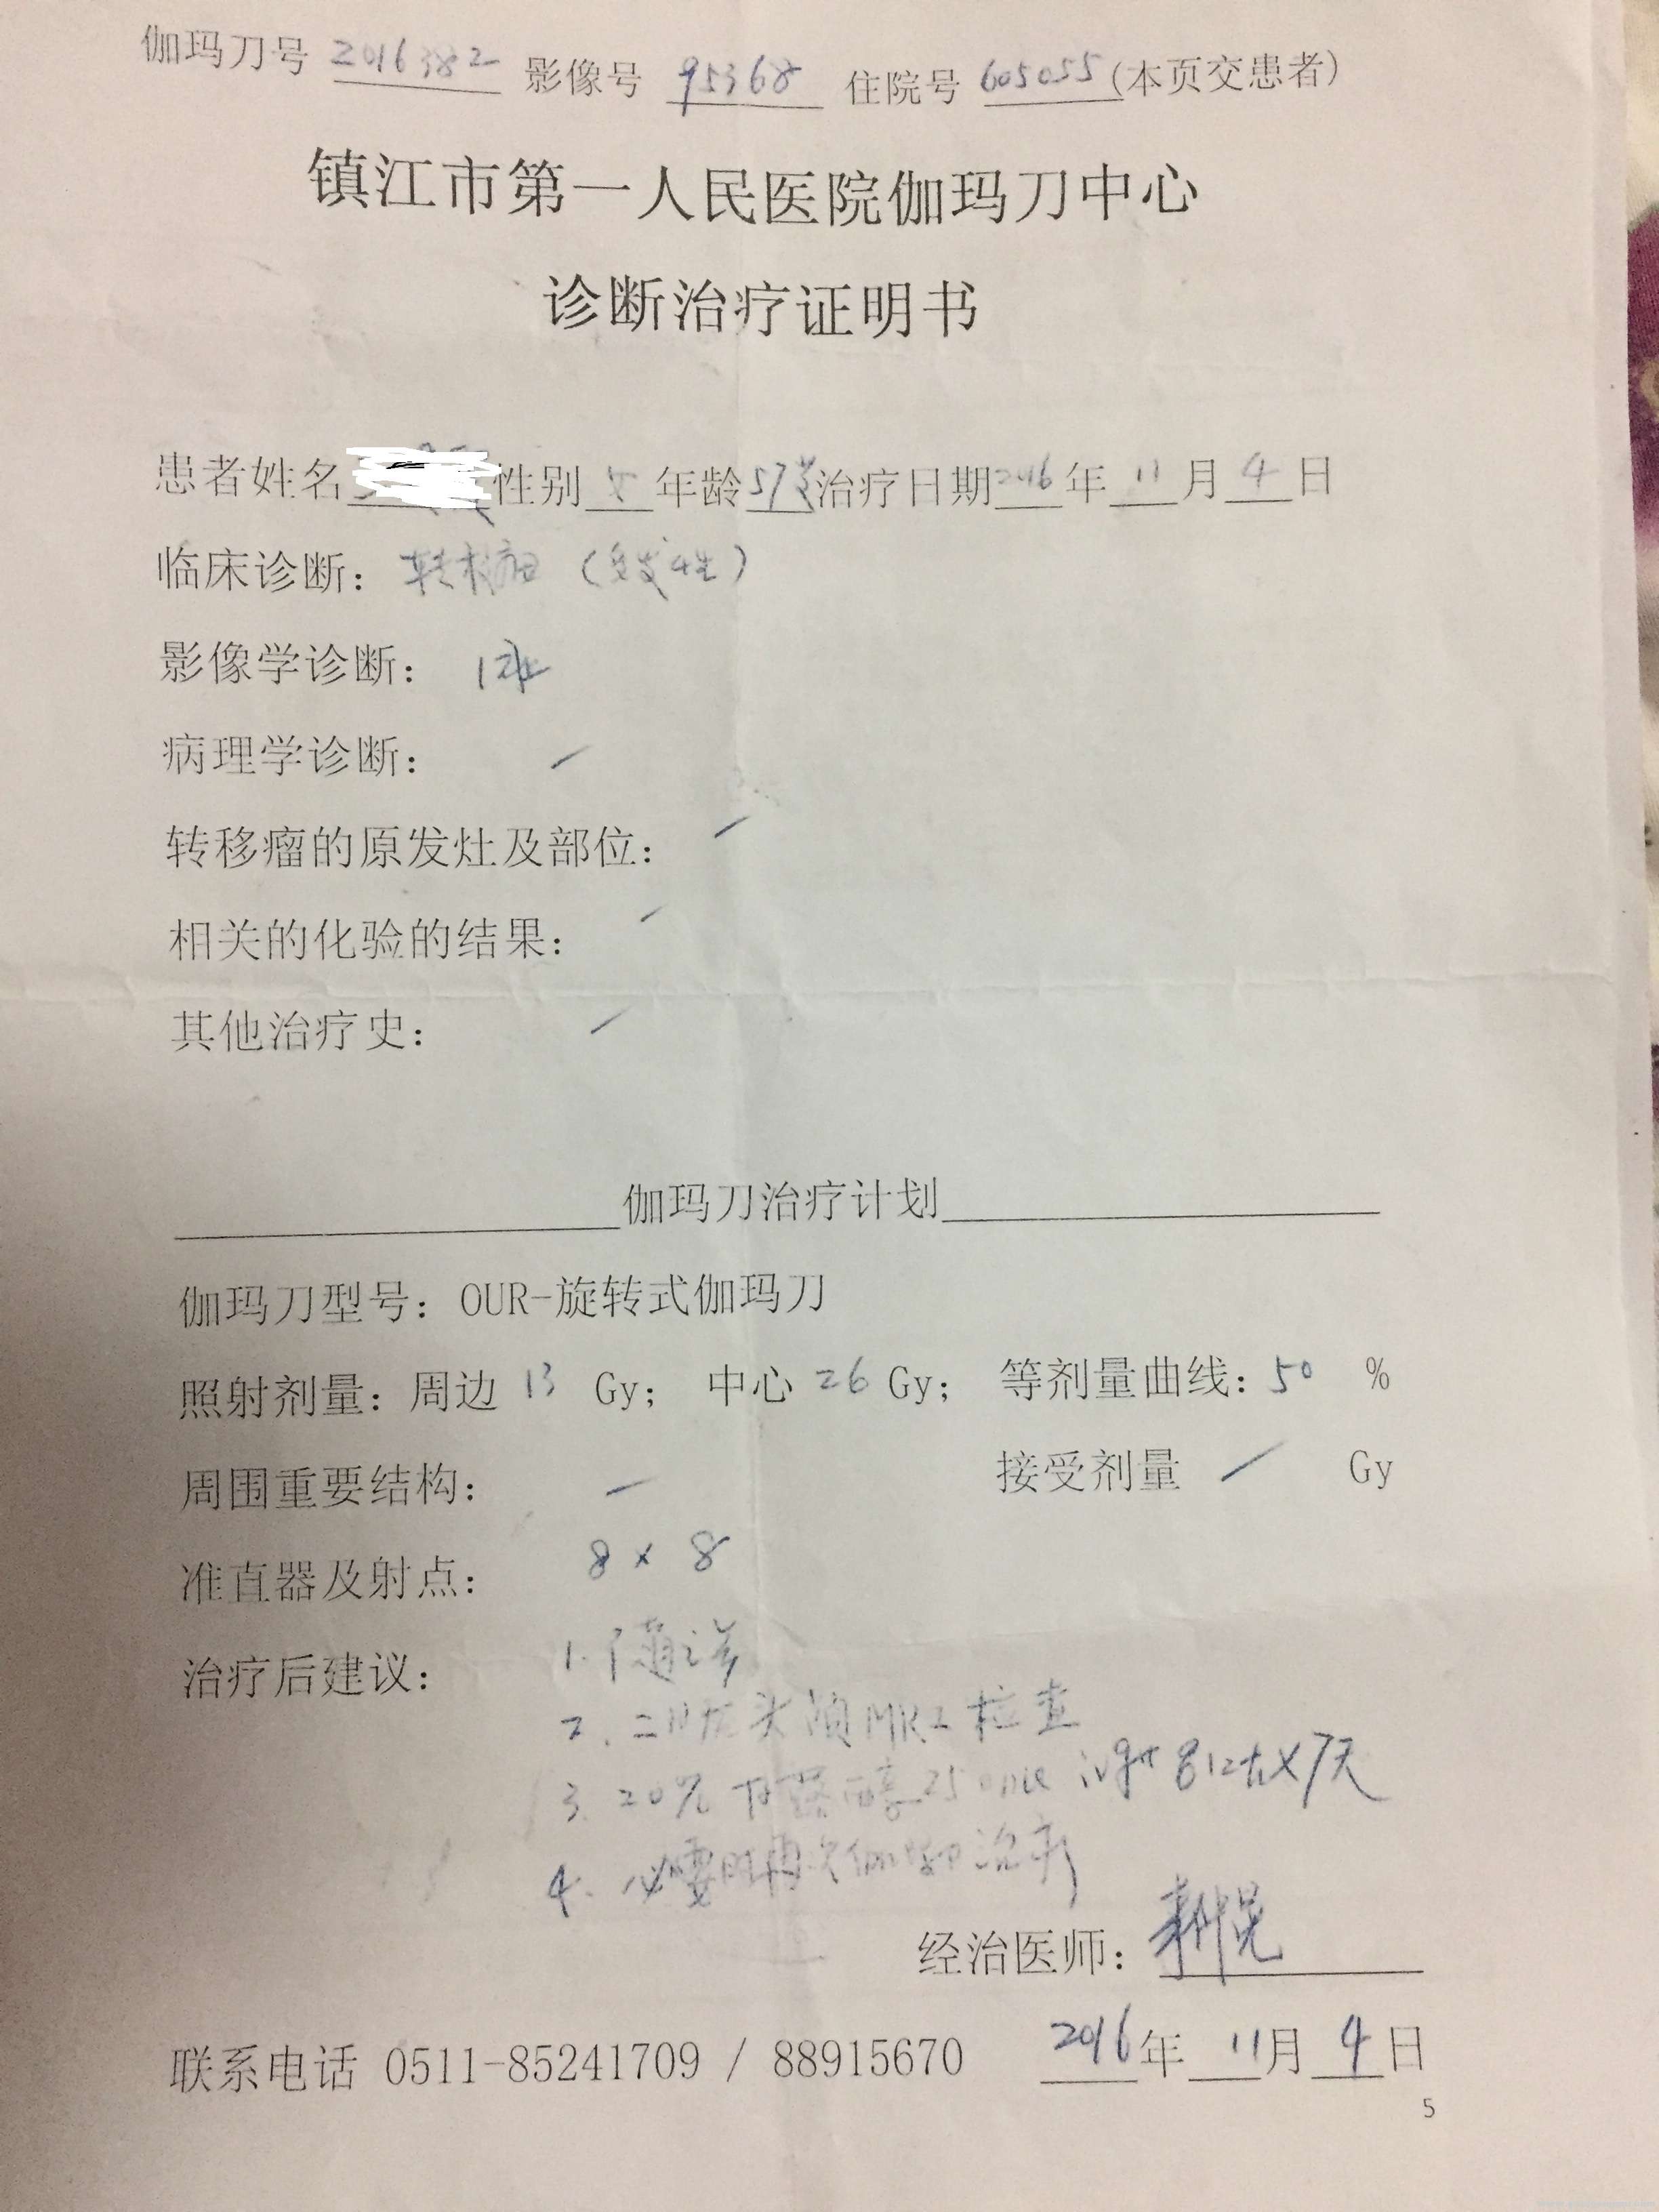 伽玛刀号 2016382 影像号 95368 住院号 605055 (本页交患者)
镇江市第一人民医院伽玛刀中心
诊断治疗证明书
患者姓名 性别 女 年龄 57岁 治疗日期 2016 年 11 月 4 日
临床诊断： 转移瘤 (多发性)
影像学诊断： 同上
病理学诊断： /
转移瘤的原发灶及部位： /
相关的化验的结果： /
其他治疗史： /
伽玛刀治疗计划
伽玛刀型号：OUR-旋转式伽玛刀
照射剂量：周边 13 Gy； 中心 26 Gy； 等剂量曲线：50 %
周围重要结构： / 接受剂量 / Gy
准直器及射点： 8 × 8
治疗后建议： 1. 随访
2. 二月后头颅MRI检查
3. 20% 甘露醇 250ml ivgtt ×7天
4. 必要时再次伽玛刀治疗
经治医师：
联系电话 0511-85241709 / 88915670 2016 年 11 月 4 日
5